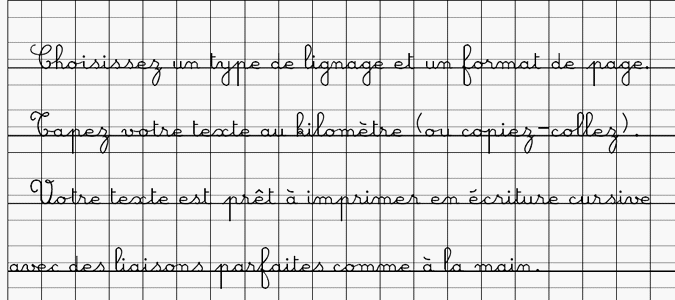 Choisissez un type de lignage et un format de page.
Tapez votre texte au kilomètre (ou copiez-collez).
Votre texte est prêt à imprimer en écriture cursive
avec des liaisons parfaites comme à la main.